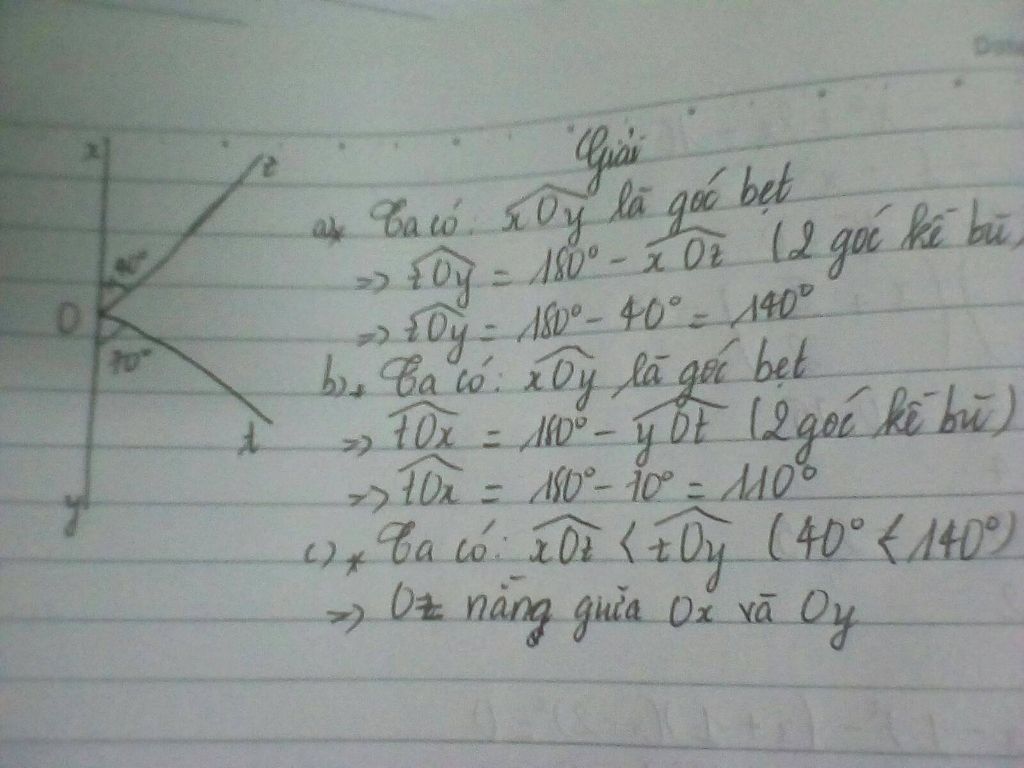 Giải
x
z
40°
O
70°
t
y
a)* Ta có: xOy là góc bẹt
=> zOy = 180° - xOz (2 góc kề bù)
=> zOy = 180° - 40° = 140°
b)* Ta có: xOy là góc bẹt
=> tOx = 180° - yOt (2 góc kề bù)
=> tOx = 180° - 70° = 110°
c)* Ta có: xOz < zOy (40° < 140°)
=> Oz nằng giữa Ox và Oy